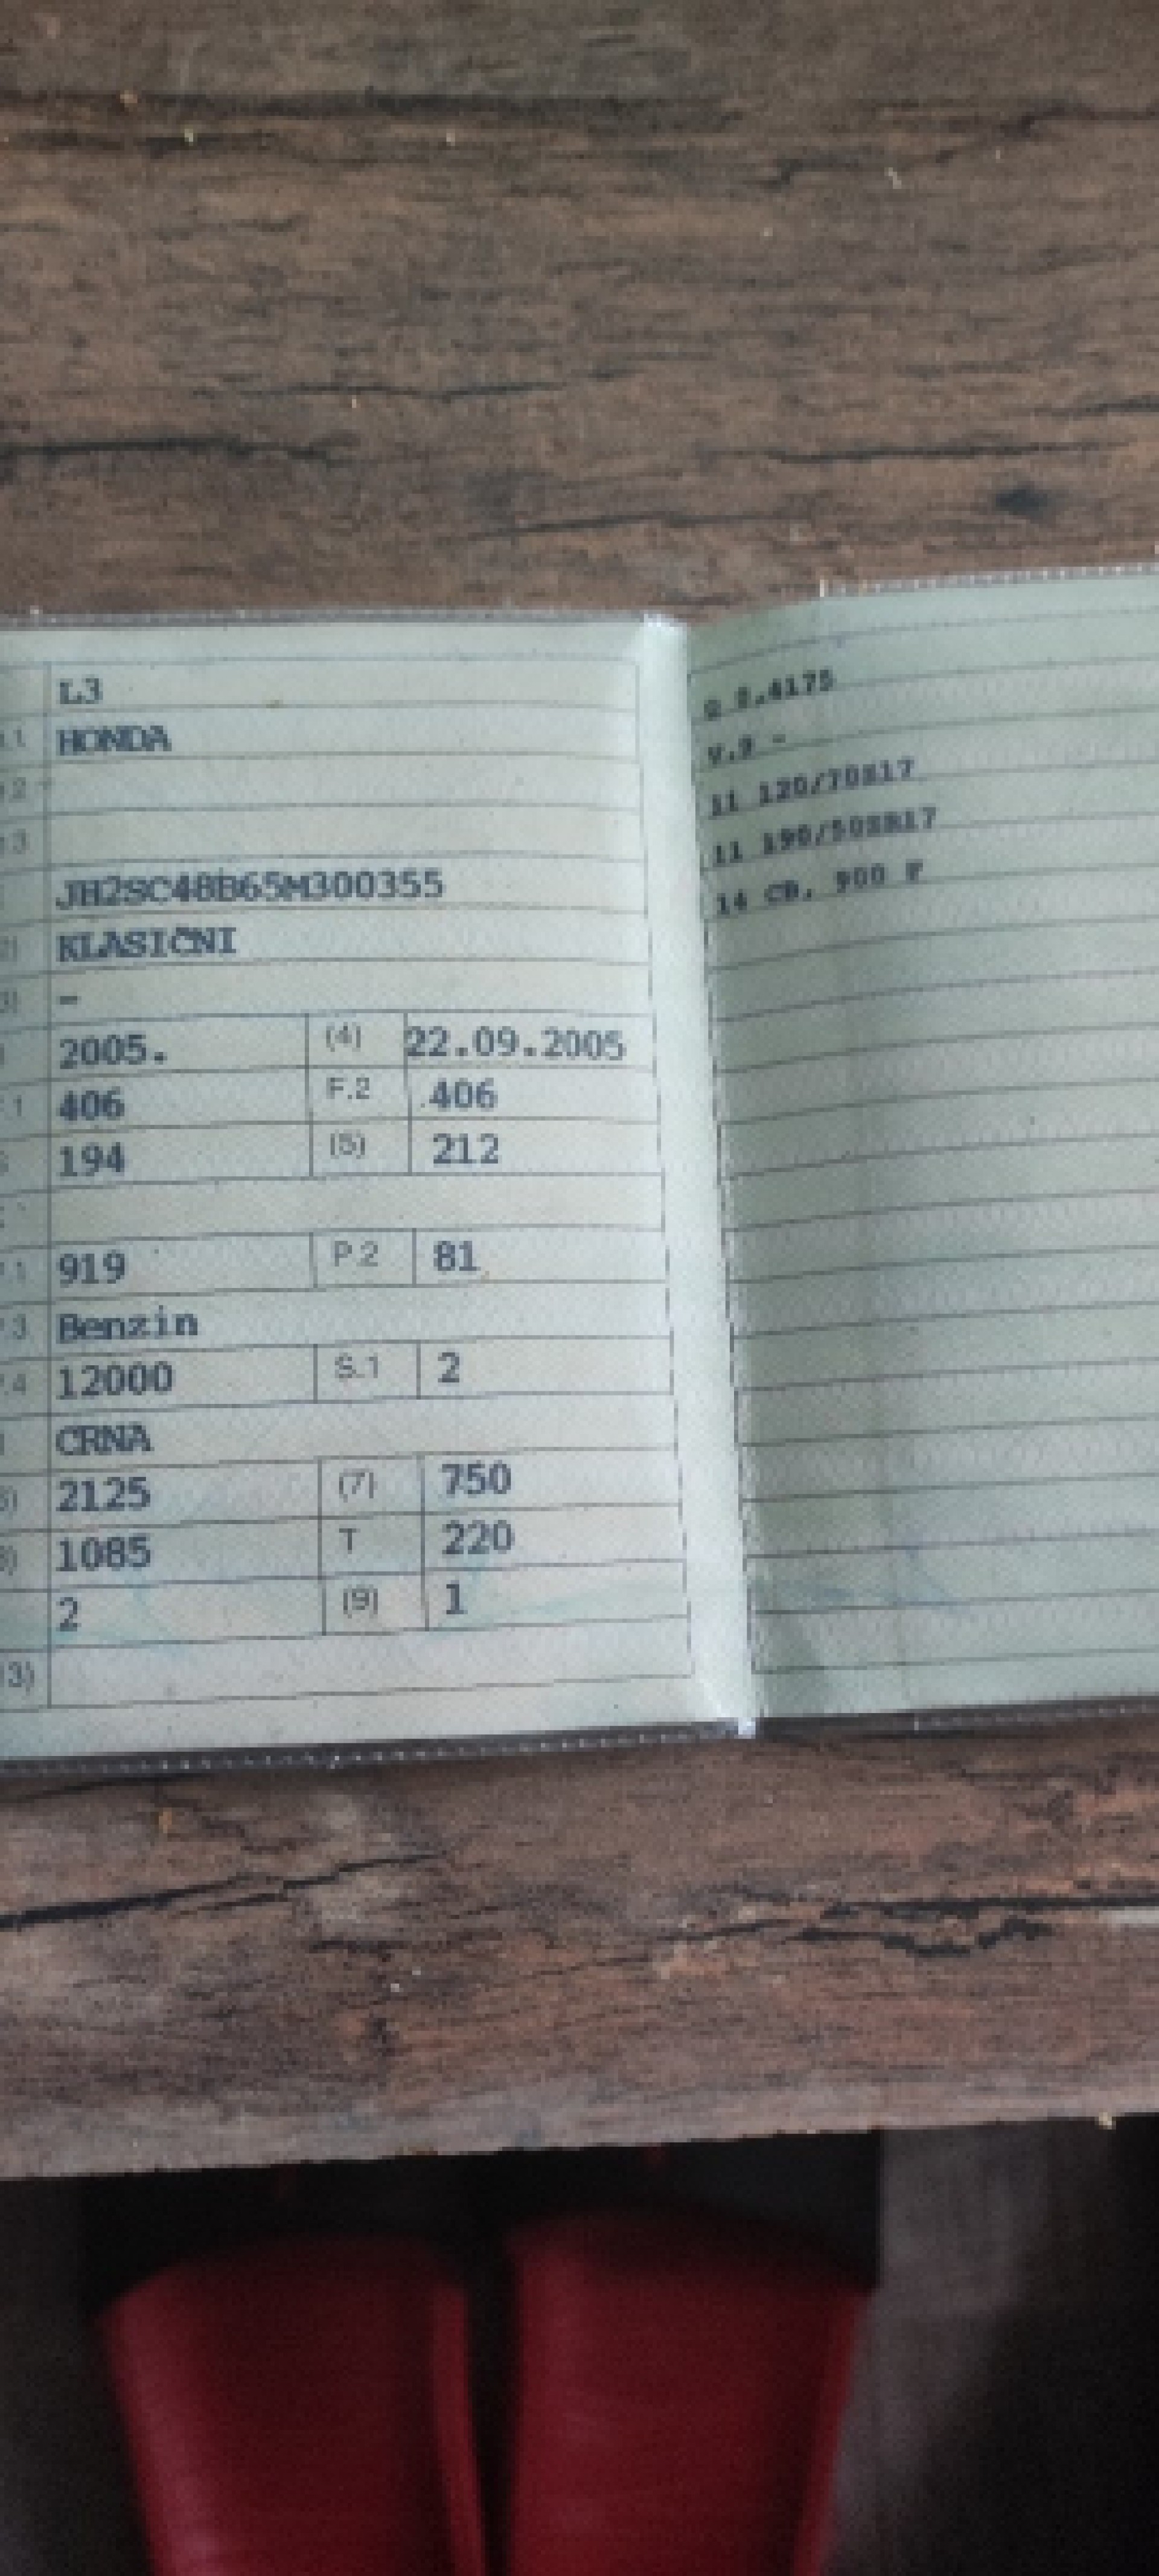 L3
.1 HONDA
.2 -
.3
JH2SC48B65M300355
2) KLASIČNI
3) -
2005. (4) 22.09.2005
.1 406 F.2 .406
194 (5) 212
.1 919 P.2 81
.3 Benzin
.4 12000 S.1 2
CRNA
6) 2125 (7) 750
8) 1085 T 220
2 (9) 1
13)
Q 0.4175
V.9 -
11 120/70R17
11 190/50ZR17
14 CB, 900 F